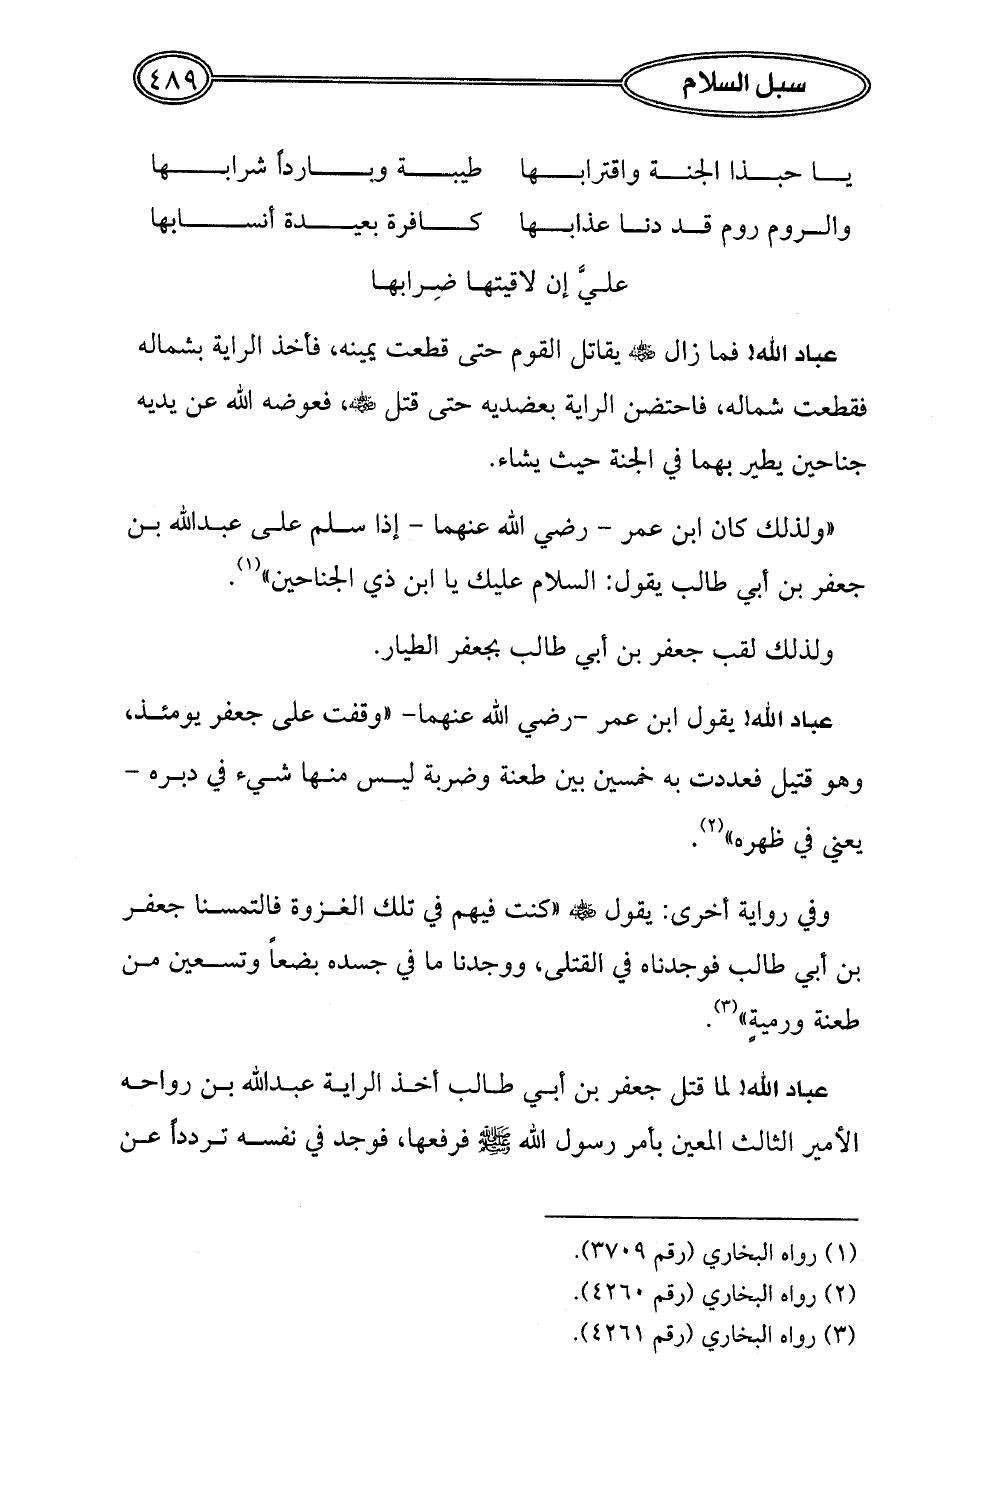 سبل السلام ٤٨٩
يا حبذا الجنة واقترابها طيبة وبارداً شرابها
والروم روم قد دنا عذابها كافرة بعيدة أنسابها
عليَّ إن لاقيتها ضِرابها
عباد الله! فما زال ﷺ يقاتل القوم حتى قطعت يمينه، فأخذ الراية بشماله
فقطعت شماله، فاحتضن الراية بعضديه حتى قتل رضي الله عنه، فعوضه الله عن يديه
جناحين يطير بهما في الجنة حيث يشاء.
«ولذلك كان ابن عمر - رضي الله عنهما - إذا سلم على عبدالله بن
جعفر بن أبي طالب يقول: السلام عليك يا ابن ذي الجناحين»(١).
ولذلك لقب جعفر بن أبي طالب بجعفر الطيار.
عباد الله! يقول ابن عمر -رضي الله عنهما- «وقفت على جعفر يومئذ،
وهو قتيل فعددت به خمسين بين طعنة وضربة ليس منها شيء في دبره -
يعني في ظهره»(٢).
وفي رواية أخرى: يقول رضي الله عنه «كنت فيهم في تلك الغزوة فالتمسنا جعفر
بن أبي طالب فوجدناه في القتلى، ووجدنا ما في جسده بضعاً وتسعين من
طعنة ورميةٍ»(٣).
عباد الله! لما قتل جعفر بن أبي طالب أخذ الراية عبدالله بن رواحه
الأمير الثالث المعين بأمر رسول الله ﷺ فرفعها، فوجد في نفسه تردداً عن
(١) رواه البخاري (رقم ٣٧٠٩).
(٢) رواه البخاري (رقم ٤٢٦٠).
(٣) رواه البخاري (رقم ٤٢٦١).